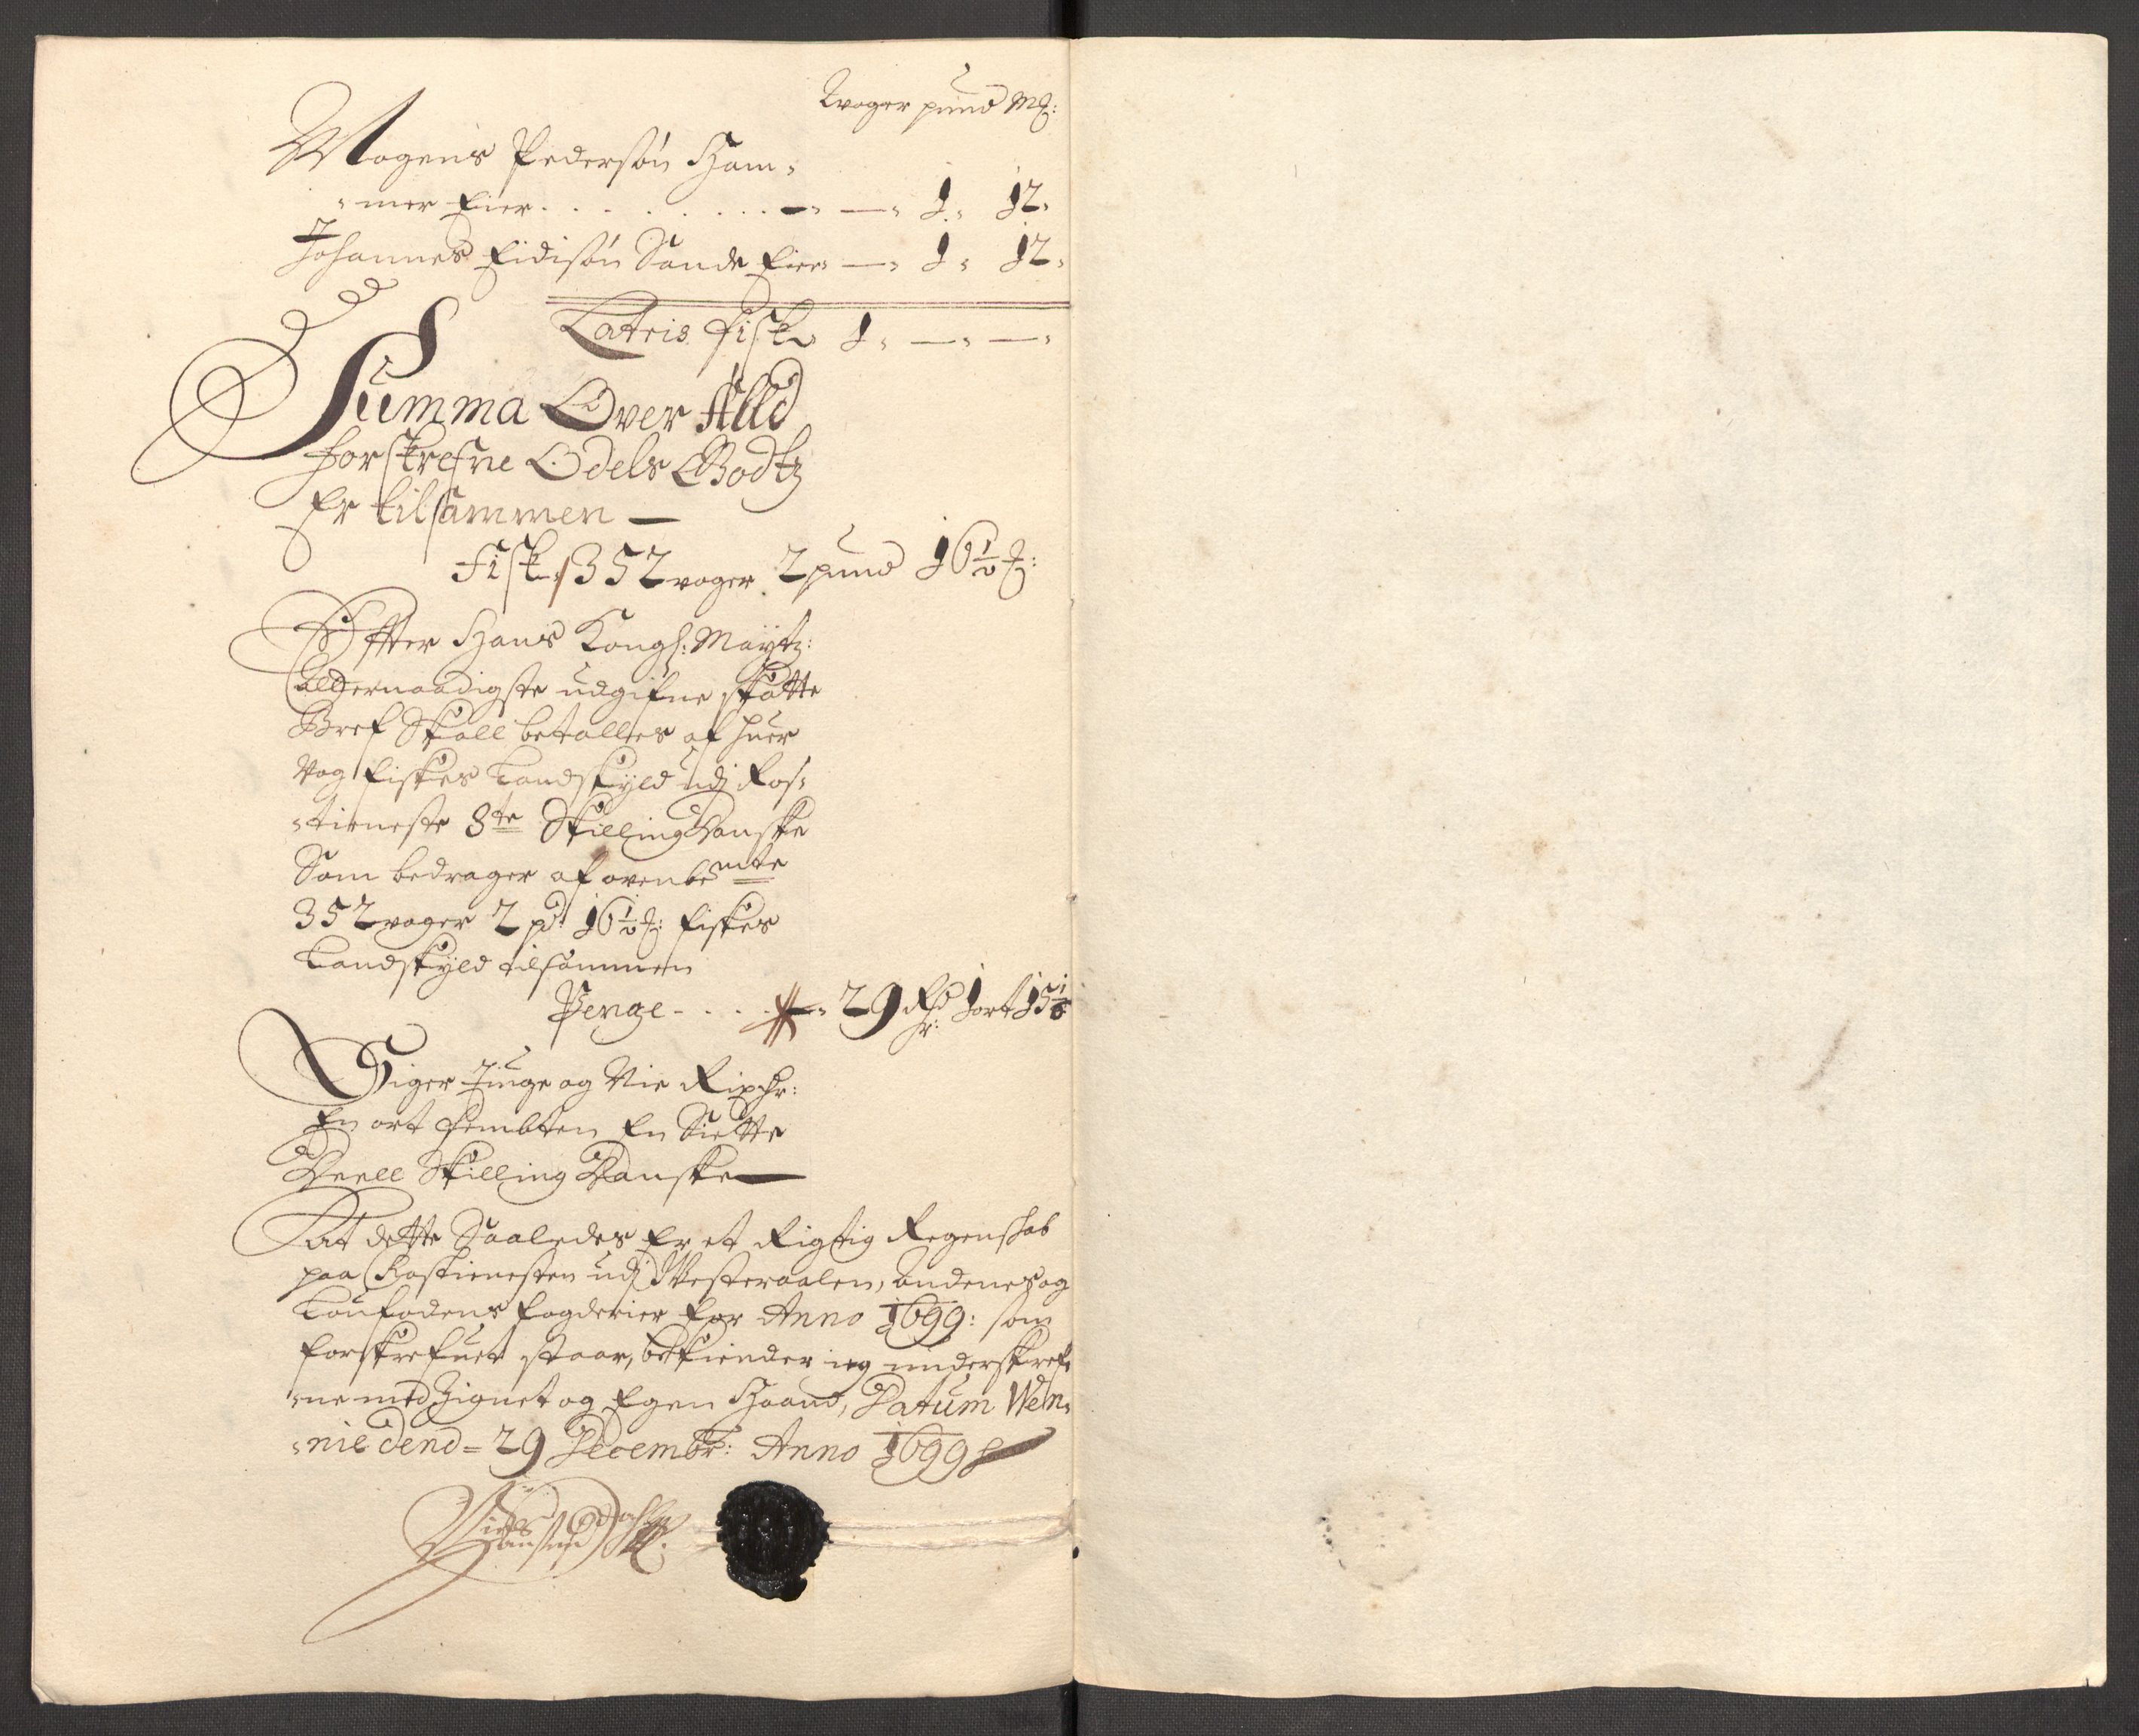 Woger pund M𝔷:
Mogens Pedersøn Ham-
-mer Eier . . . . . . . . . — - — - 1 - 12 -
Johannes Eidisøn Sande Eier - — - 1 - 12 -
Latris Fisk - 1 - — - — -
Summa Over Alld
forskrefne Odels Godtz
Er tilsammen —
Fisk 352 woger 2 pund 16½ 𝔷:
Efter Hans Kongl: Maÿtz:
allernaadigste udgifne skatte
Bref Skall betalles af huer
Wog Fiskes Landskÿld udj Ros-
-tieneste 8te Skilling Danske
Som bedrager af ovenbemte
352 woger 2 pd 16½ 𝔷: fiskes
Landskÿld tilsammen
Penge - . . . - 29 Rdr: 1 ort 15⅙
Siger Tiuge og Nie Rixdr:
En ort Fembten En Siette
Deell Skilling Danske —
At dette Saaledes Er et Rigtig Regenskab
paa Rostienesten udj Westeraalen, Andenes og
Loufodens fogderier for Anno 1699: som
forskrefuet staar, bekiender ieg underskref-
-ne med Zignet og Egen Haand, Datum Wen-
-nie dend = 29 Decembr: Anno 1699